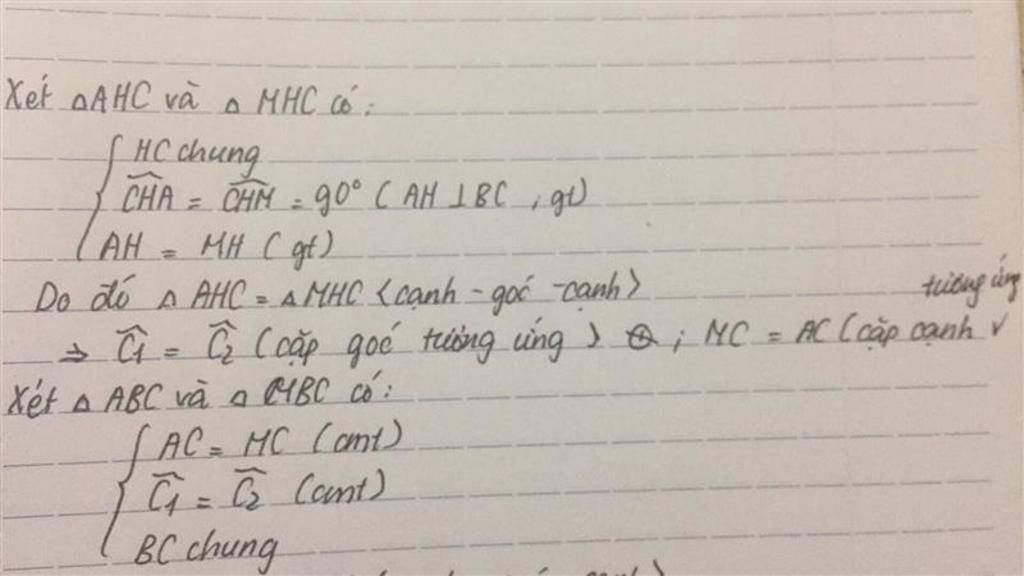 Xét ΔAHC và Δ MHC có:
HC chung
CHA = CHM = 90° ( AH ⊥ BC , gt)
AH = MH ( gt)
Do đó Δ AHC = Δ MHC (cạnh - góc - cạnh)
⇒ C1 = C2 (cặp góc tương ứng) ; MC = AC (cặp cạnh tương ứng
Xét Δ ABC và Δ MBC có:
AC = MC (cmt)
C1 = C2 (cmt)
BC chung